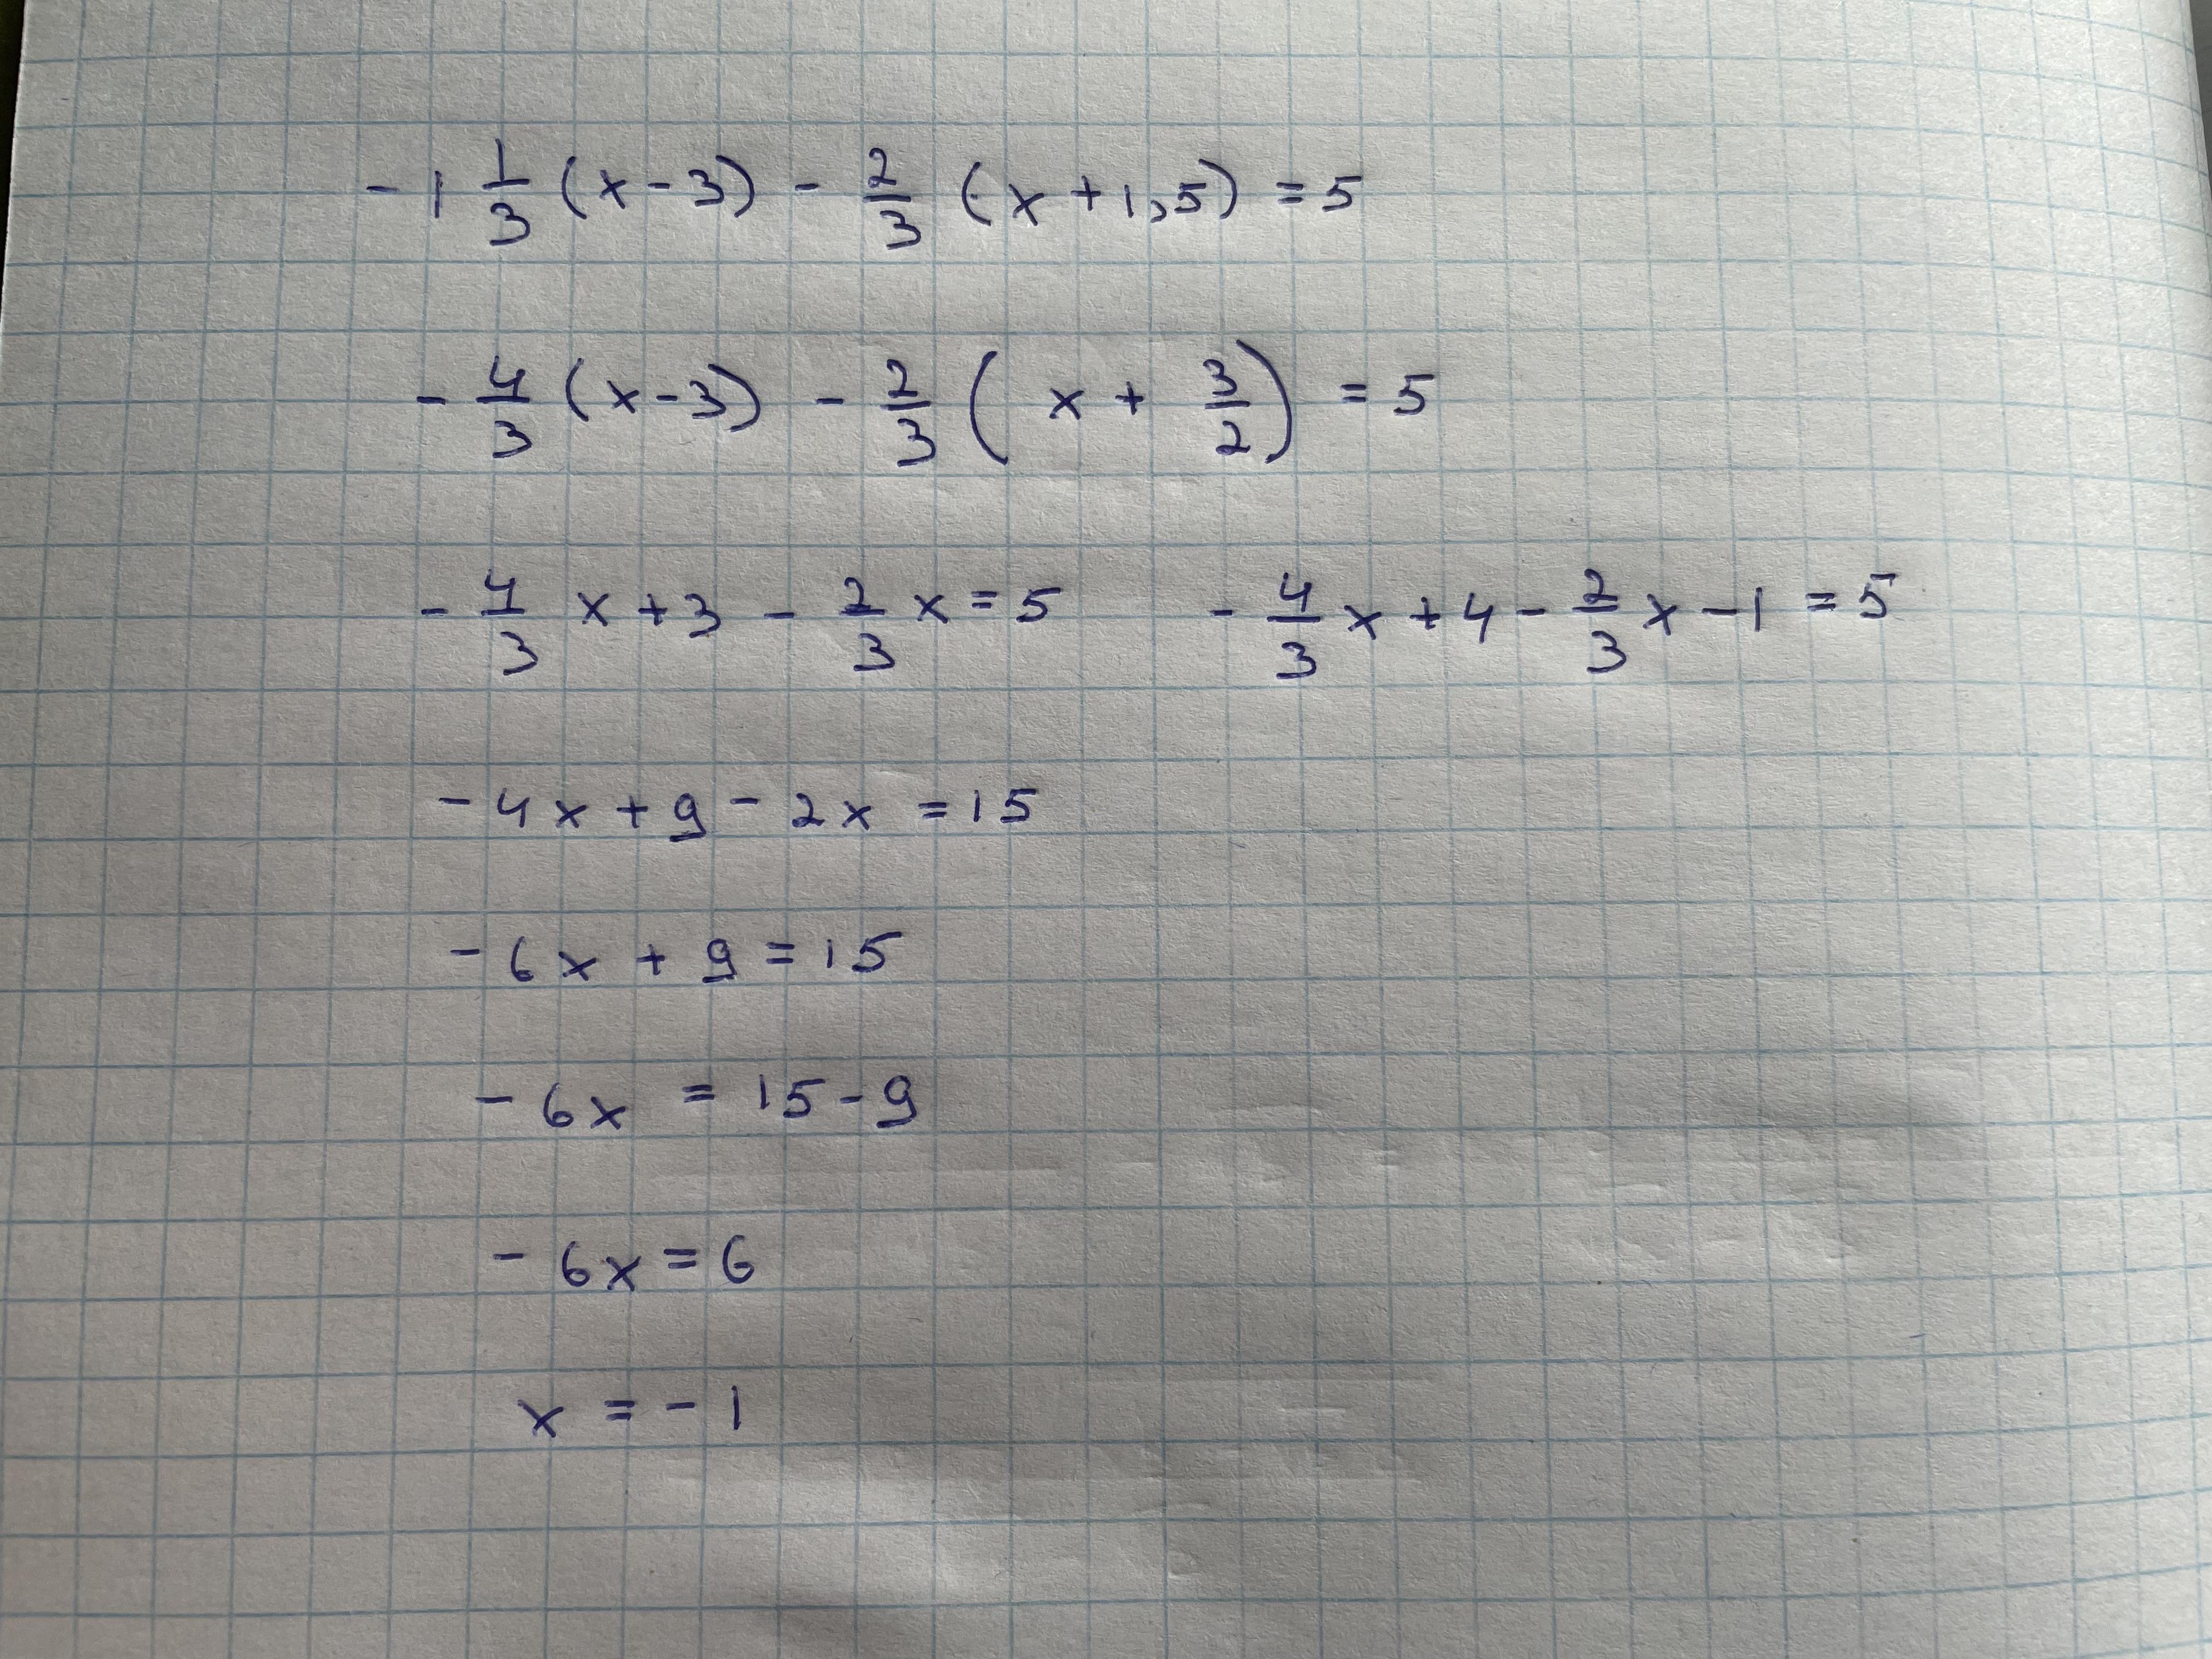 -1 1/3 (x-3) - 2/3 (x+1,5) = 5
- 4/3 (x-3) - 2/3 ( x + 3/2 ) = 5
- 4/3 x + 3 - 2/3 x = 5    - 4/3 x + 4 - 2/3 x - 1 = 5
- 4x + 9 - 2x = 15
- 6x + 9 = 15
- 6x = 15 - 9
- 6x = 6
x = - 1